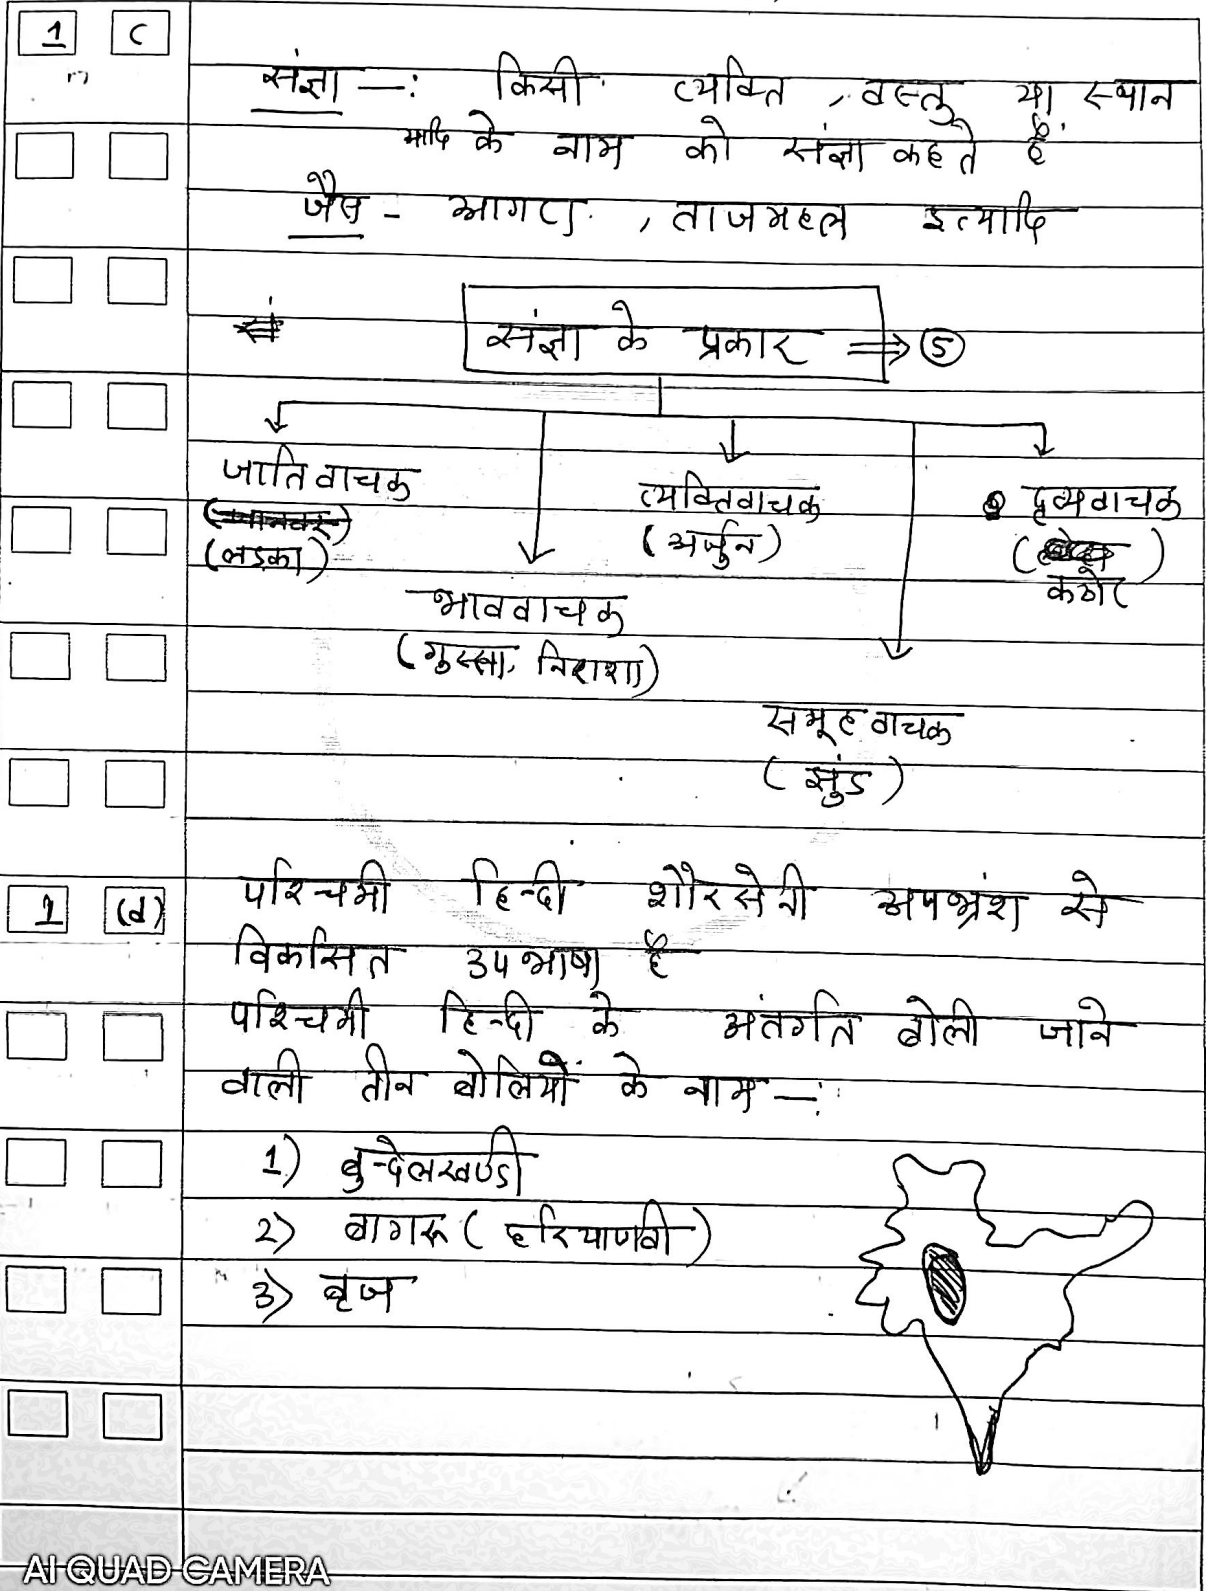 1 C
संज्ञा —: किसी व्यक्ति, वस्तु या स्थान
आदि के नाम को संज्ञा कहते हैं
जैसे - आगरा, ताजमहल इत्यादि
संज्ञा के प्रकार ⇒ ⑤
जातिवाचक
(लडका)
व्यक्तिवाचक
(अर्जुन)
द्रव्यवाचक
( )
कठोर
भाववाचक
(गुस्सा, निराशा)
समूहवाचक
(झुंड)
1 (d)
पश्चिमी हिन्दी शौरसेनी अपभ्रंश से
विकसित उपभाषा है
पश्चिमी हिन्दी के अंतर्गत बोली जाने
वाली तीन बोलियों के नाम —:
1) बुन्देलखण्डी
2) बागरू (हरियाणवी)
3) बृज
AI QUAD CAMERA